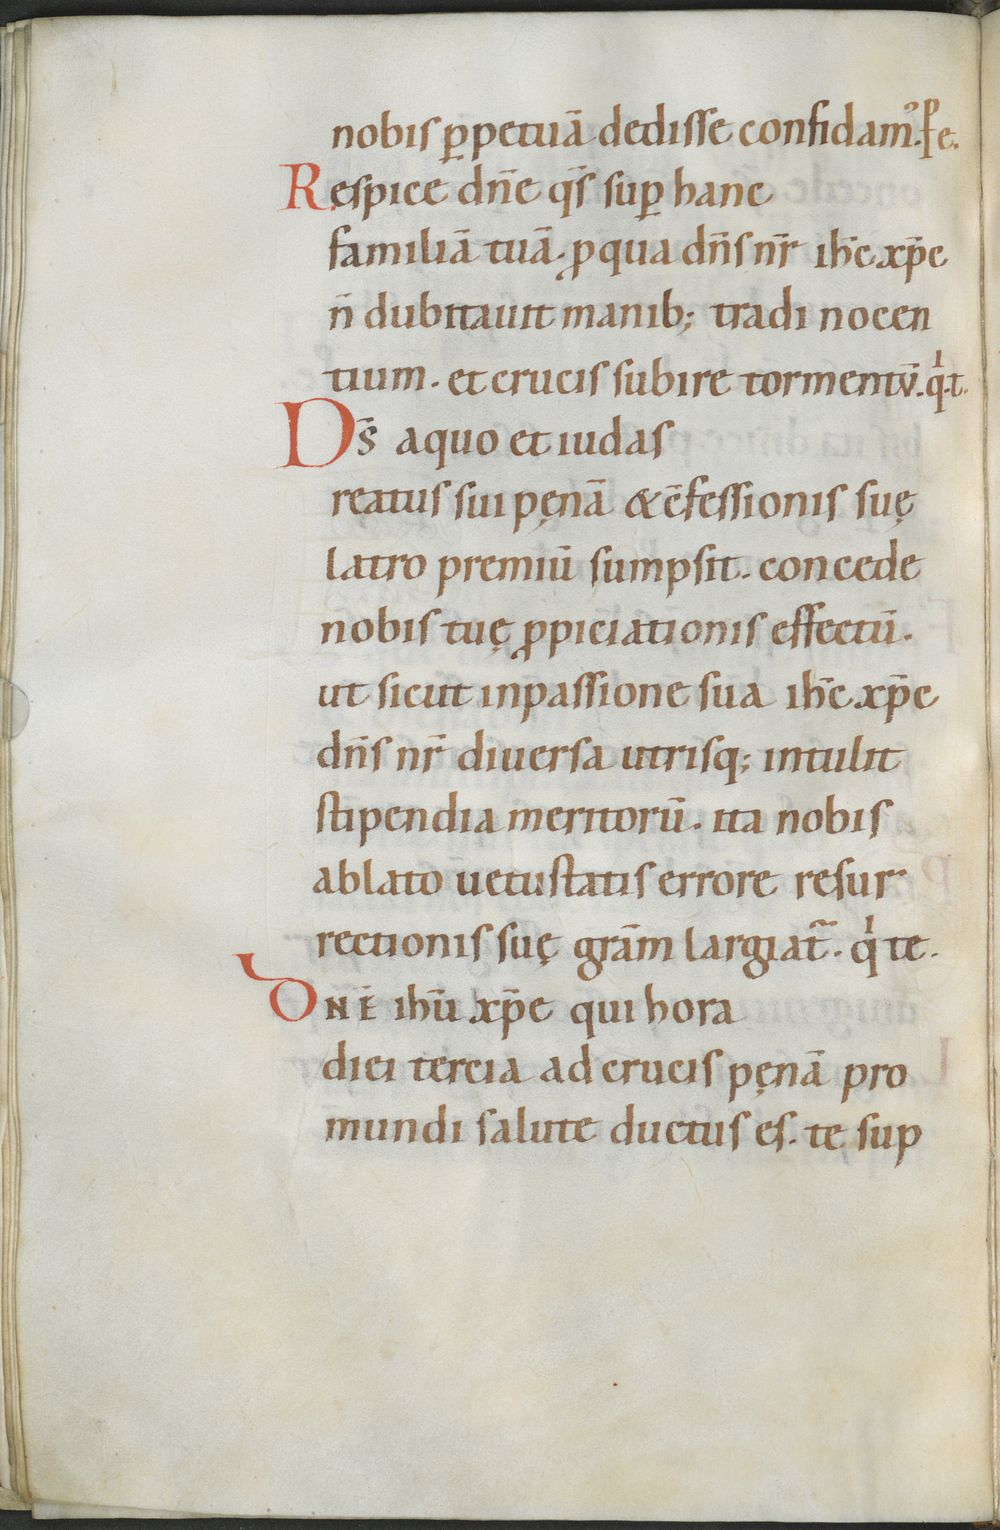 nobis ꝑpetuā dedisse confidam᷒. ꝑ e.
Respice dn̄e q̄s suꝑ hanc
familiā tuā. ꝓ qua dn̄s nr̄ ih̄c xp̄c
n̄ dubitauit manib; tradi nocen
tium. et crucis subire tormentū. qͥ. t.
Ds̄ a quo et iudas
reatus sui pęnā & c̄fessionis suę
latro premiū sumpsit. concede
nobis tuę ꝓpiciationis effectū.
ut sicut in passione sua ih̄c xp̄c
dn̄s nr̄ diuersa utrisq; intulit
stipendia meritorū. ita nobis
ablato uetustatis errore resur
rectionis suę grām largiat᷑. qͥ te.
DNĒ ih̄u xp̄e qui hora
diei tercia ad crucis pęnā pro
mundi salute ductus es. te sup